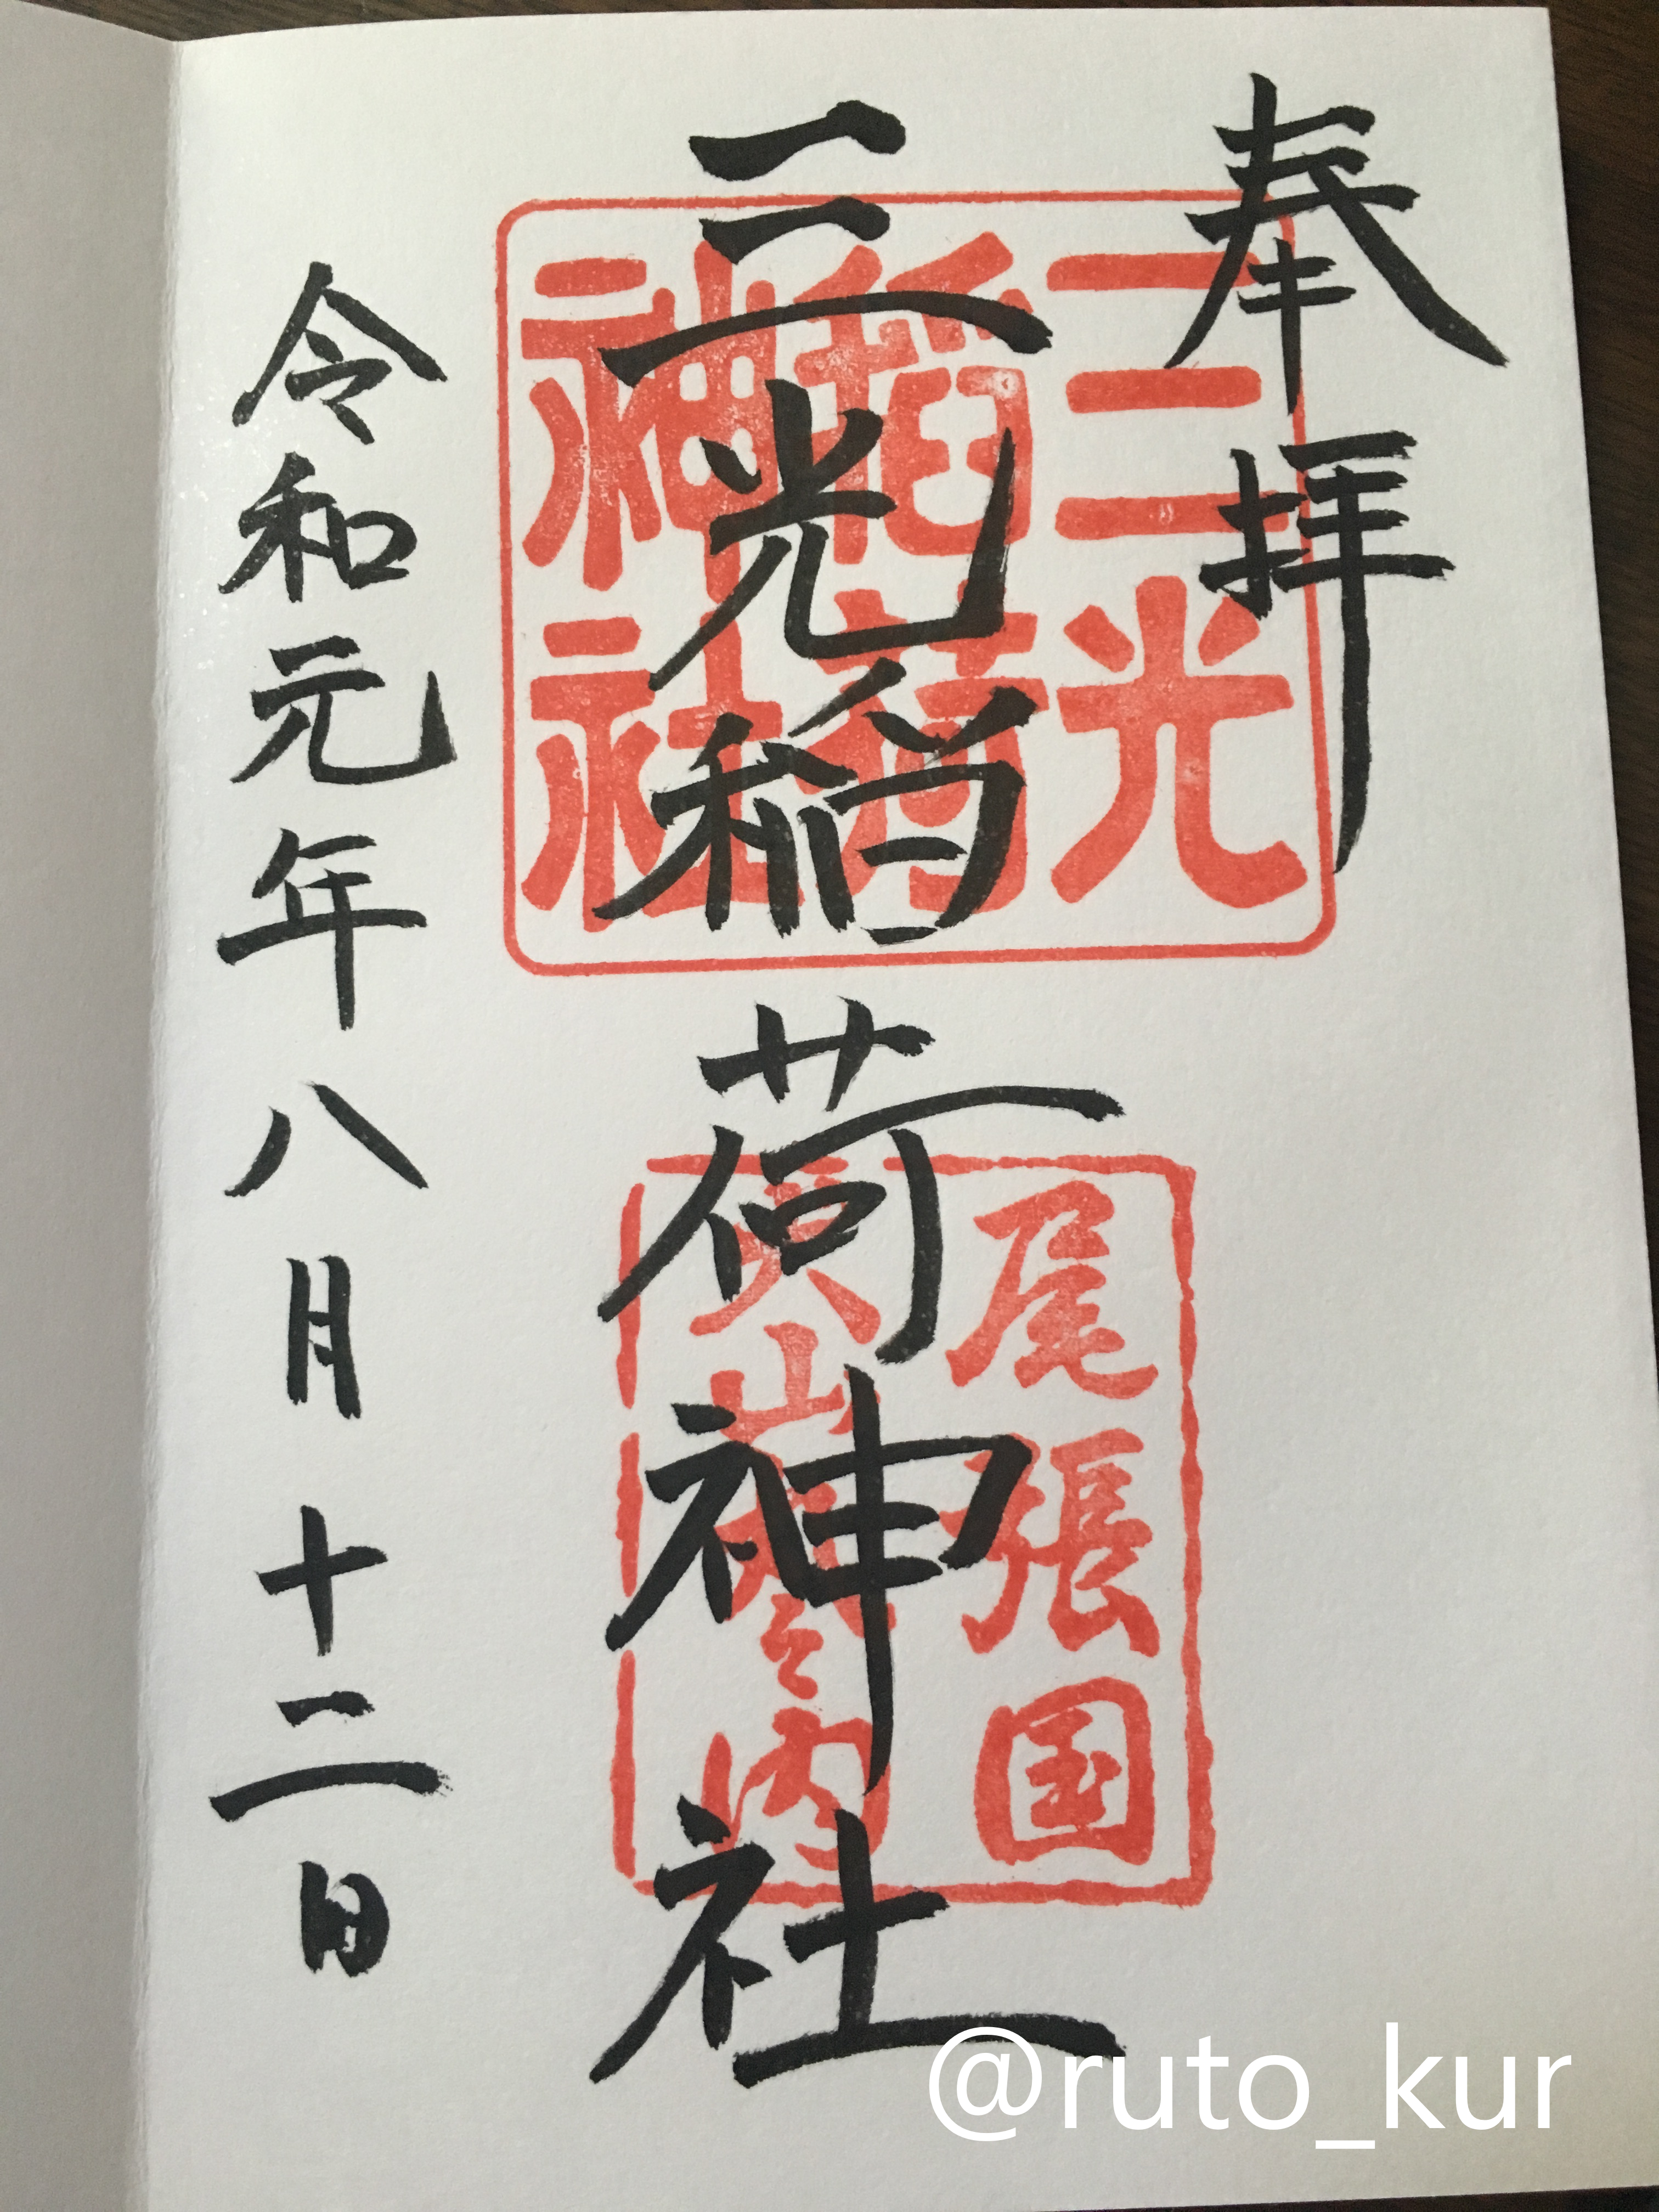 奉拝
三光稲荷神社
令和元年八月十二日
三光
稲荷
神社
尾張国
犬山城之内
@ruto_kur